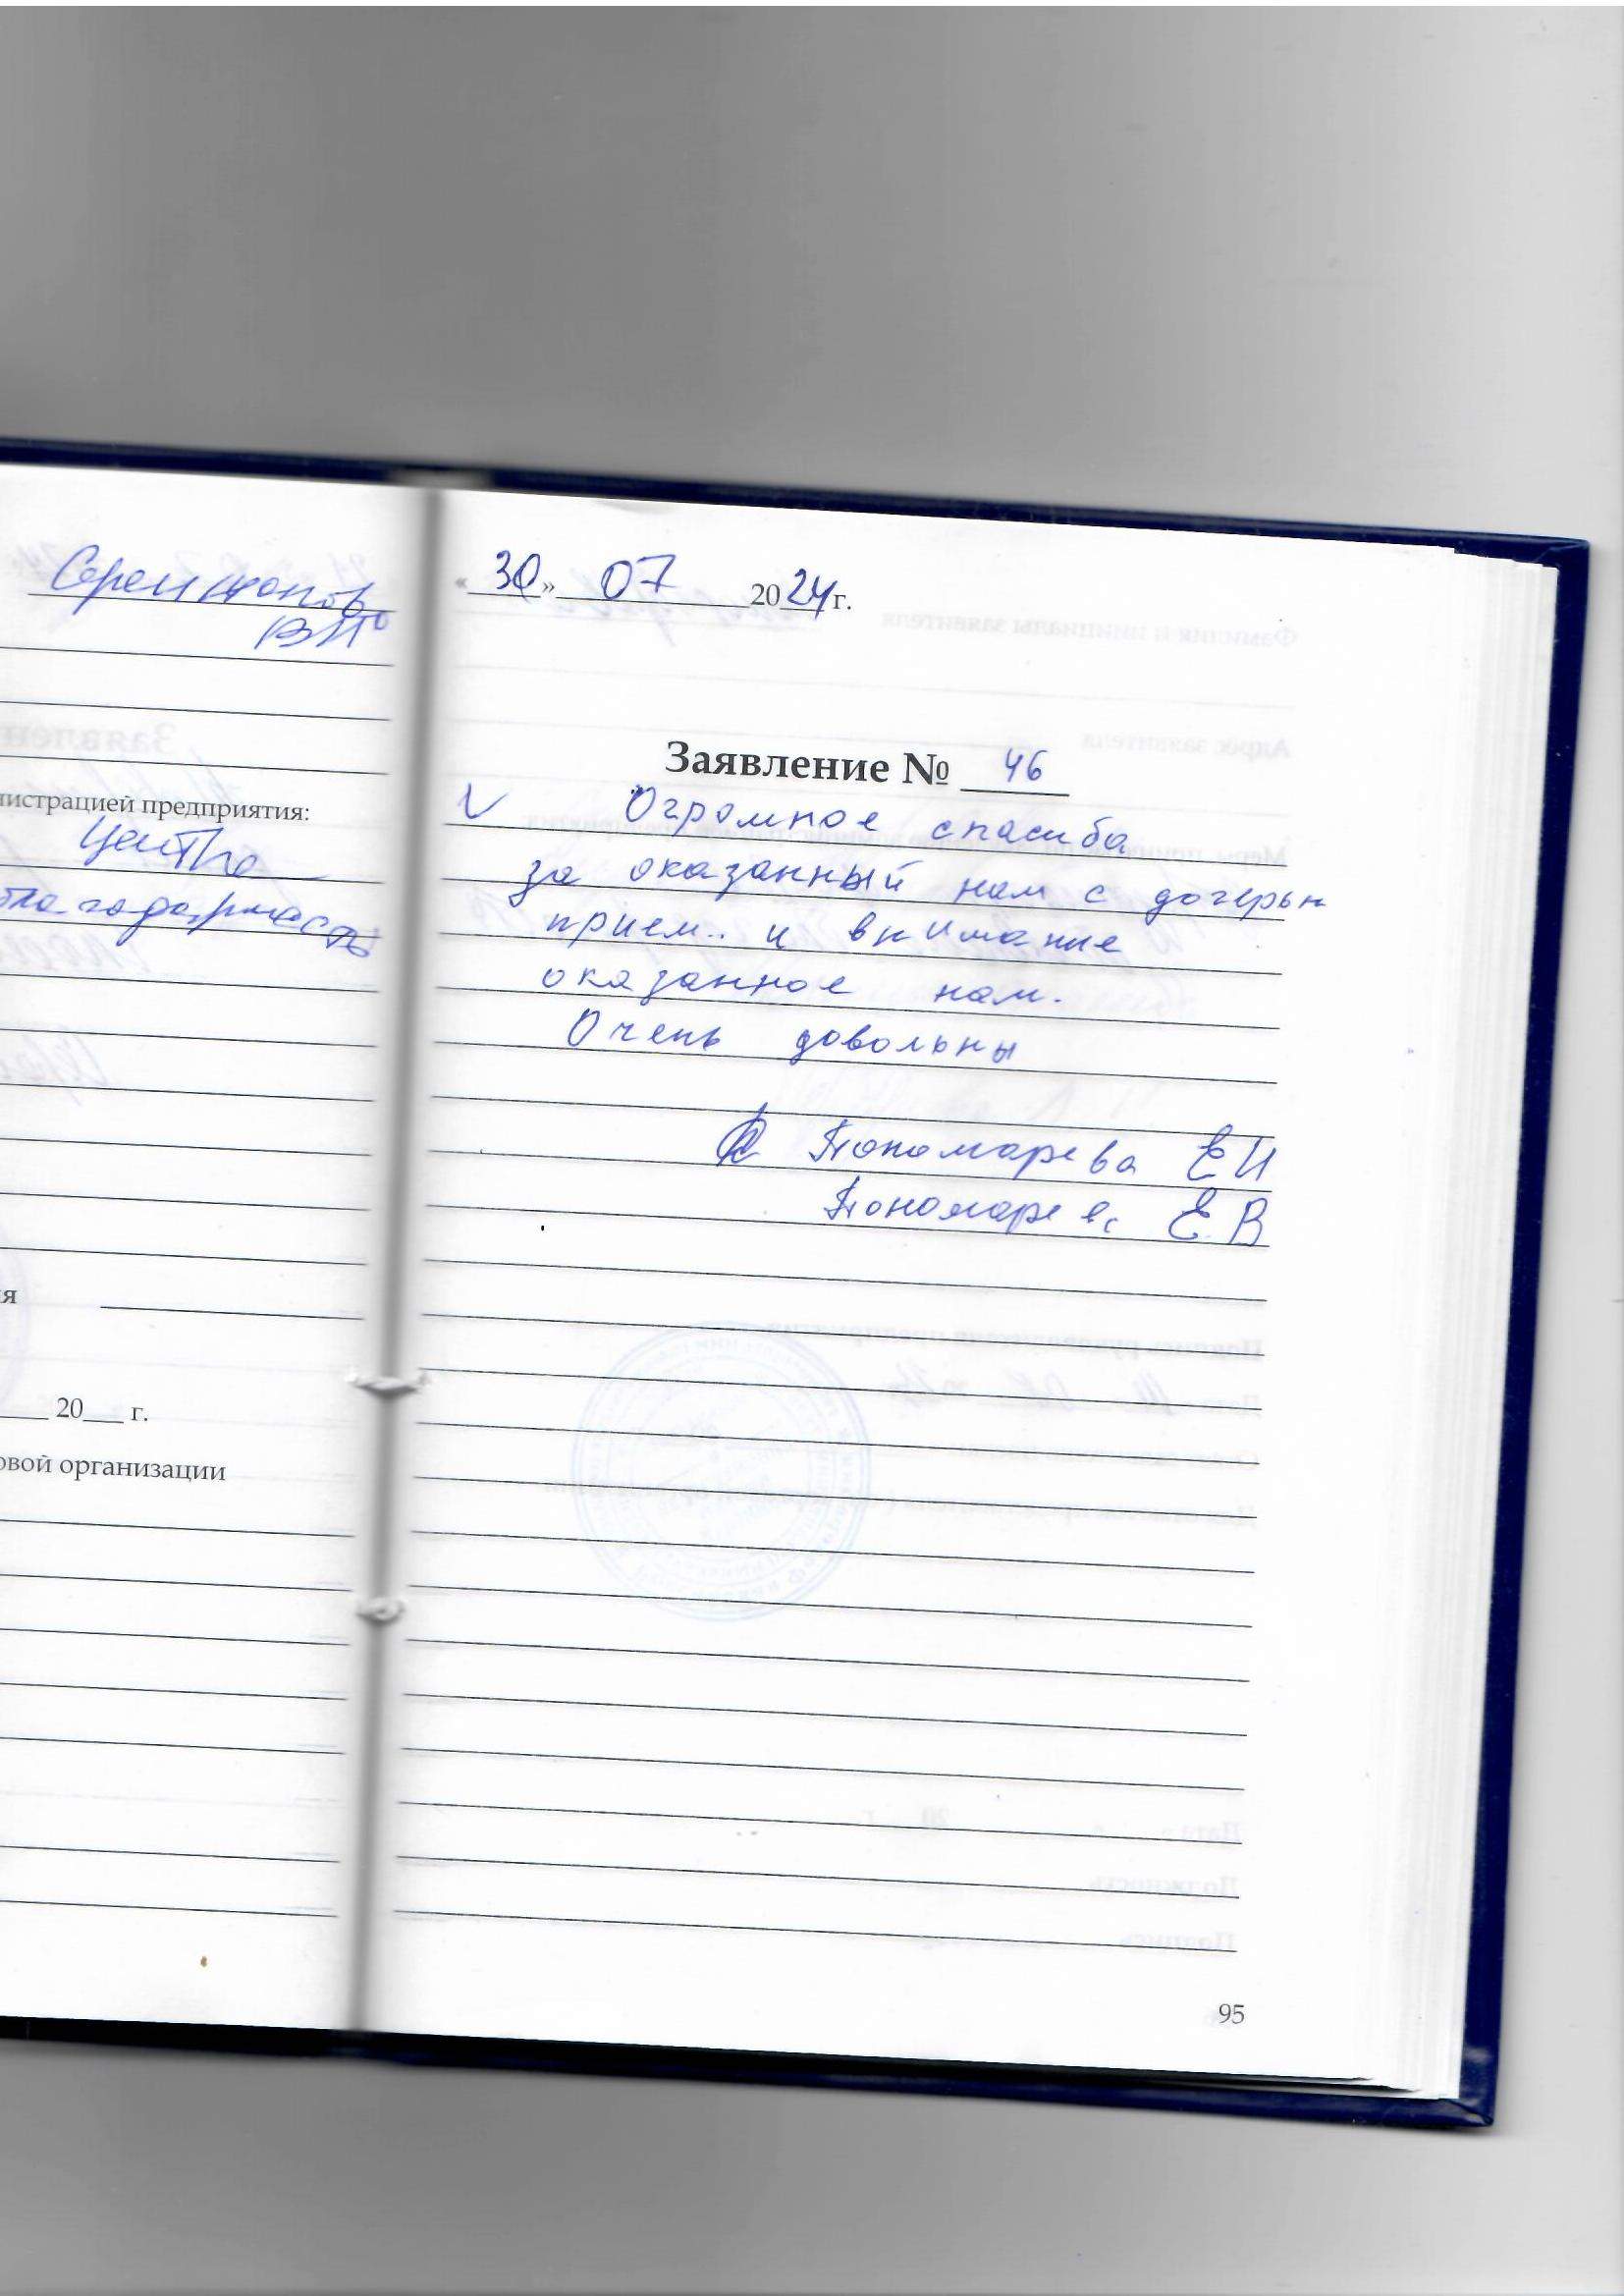 ВП
нистрацией предприятия:
Центра
благодарность
я
20 г.
овой организации
« 30 » 07 2024 г.
Заявление № 46
V Огромное спасиба
за оказанный нам с дочерьн
прием.. и внимание
оказанное нам.
Очень довольны
Пономарева ЕИ
Е.В
95